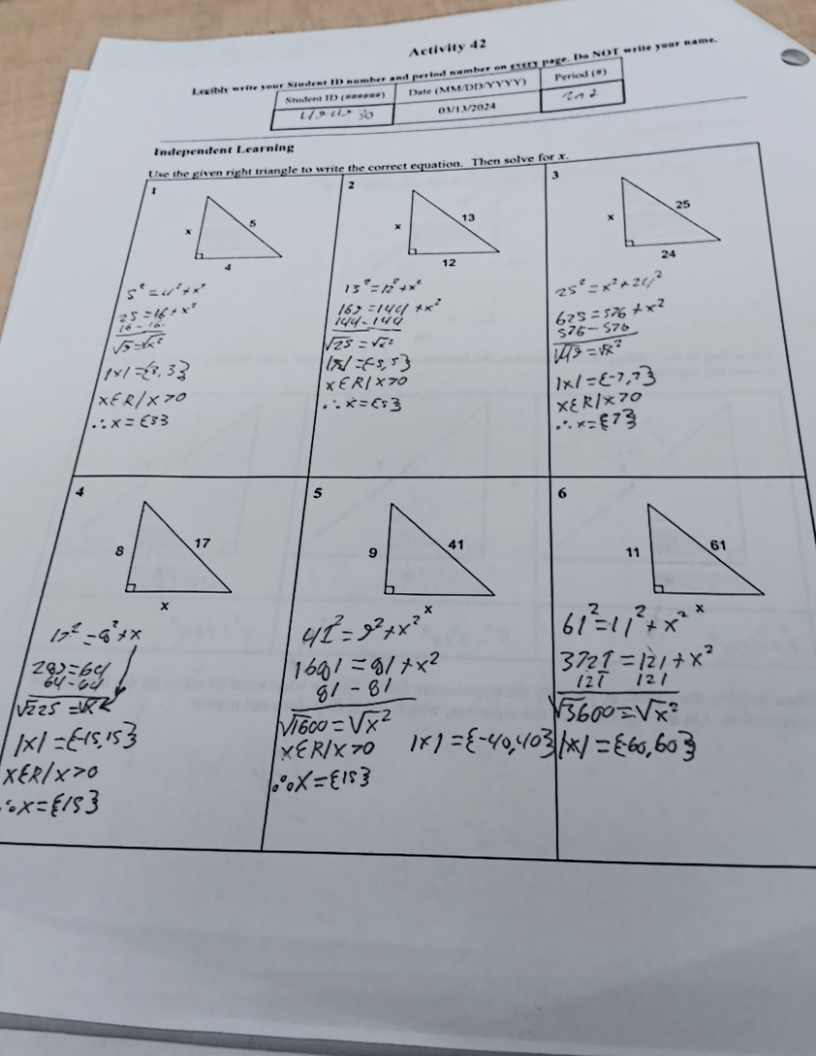 Activity 42
Legibly write your Student ID number and period number on every page. Do NOT write your name.
Student ID (######)
Date (MM/DD/YYYY)
Period (#)
03/13/2024
Independent Learning
Use the given right triangle to write the correct equation. Then solve for x.
1
x
5
4
5² = 4² + x²
25 = 16 + x²
16 - 16
|x| = {3, 3}
x∈R/x>0
∴ x = {3}
2
x
13
12
13² = 12² + x²
169 = 144 + x²
144 - 144
√25 = √x²
|x| = {-5, 5}
x∈R/x>0
∴ x = {5}
3
x
25
24
25² = x² + 24²
625 = 576 + x²
576 - 576
√49 = √x²
|x| = {-7, 7}
x∈R/x>0
∴ x = {7}
4
8
17
x
17² = 8² + x
289 = 64
64 - 64
√225 = √x²
|x| = {-15, 15}
x∈R/x>0
∴ x = {15}
5
9
41
x
41² = 9² + x²
1681 = 81 + x²
81 - 81
√1600 = √x²
x∈R/x>0 |x| = {-40, 40}
∴ x = {15}
6
11
61
x
61² = 11² + x²
3721 = 121 + x²
121 121
√3600 = √x²
|x| = {-60, 60}